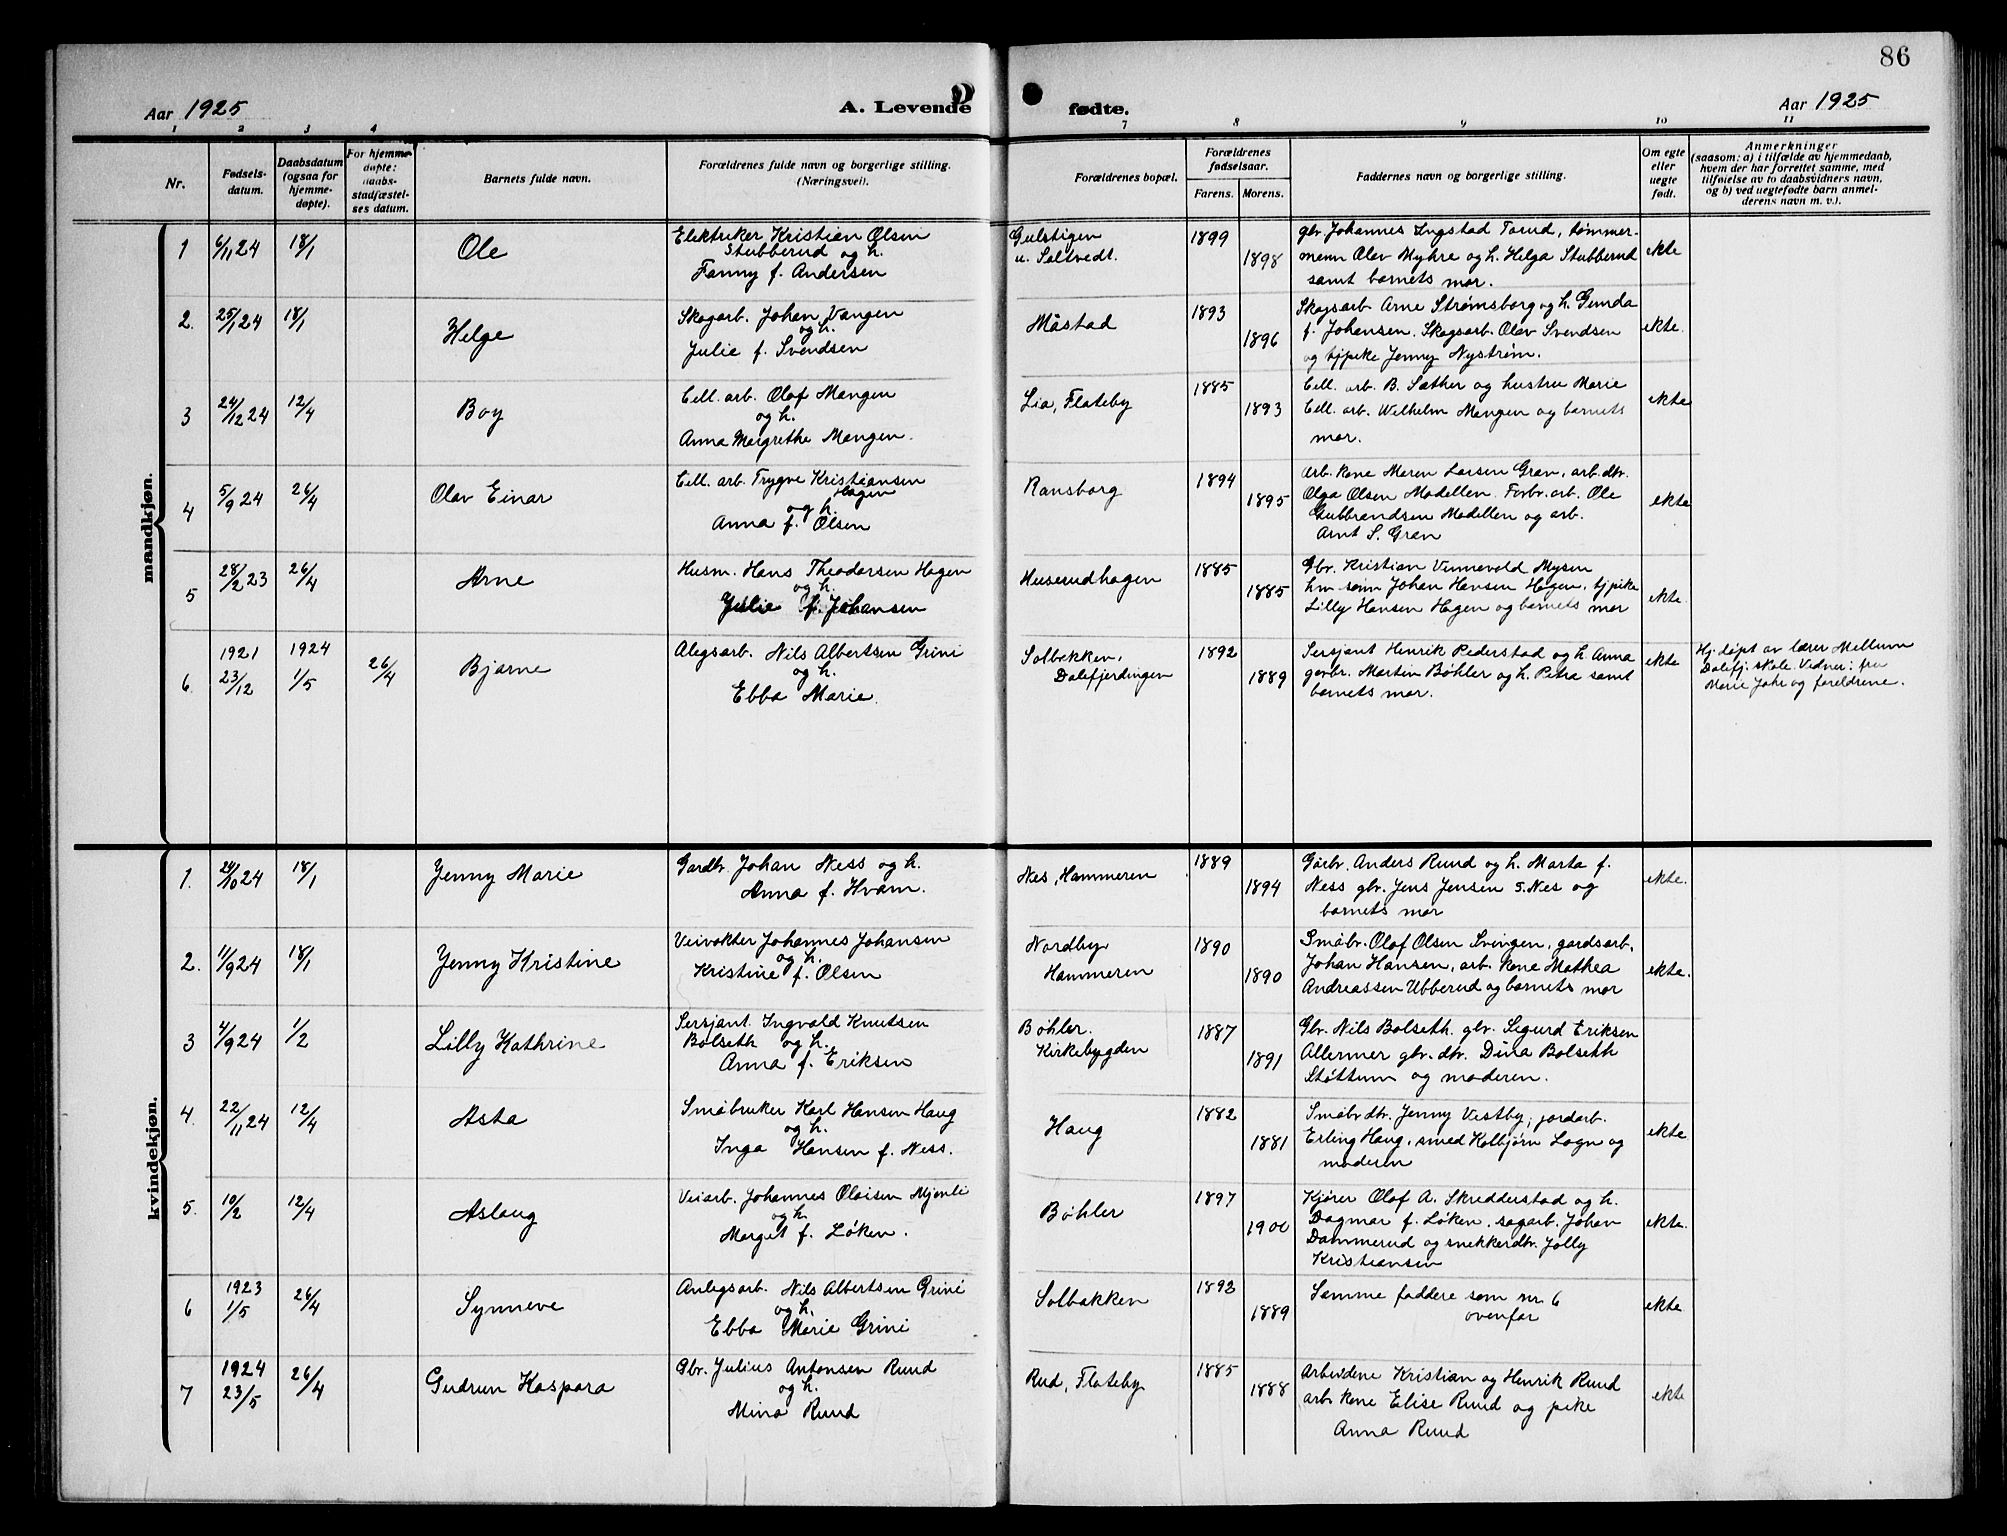 86
Aar 1925
A. Levende
fødte.
Aar 1925
1 2 3 4
7 8 9 10 11
Nr.
Fødsels-
datum.
Daabsdatum
(ogsaa for
hjemme-
døpte).
For hjemme-
døpte:
daabs-
stadfæstel-
ses datum.
Barnets fulde navn.
Forældrenes fulde navn og borgerlige stilling.
(Næringsvei).
Forældrenes bopæl.
Forældrenes
fødselsaar.
Farens. Morens.
Faddernes navn og borgerlige stilling.
Om egte
eller
uegte
født.
Anmerkninger
(saasom: a) i tilfælde av hjemmedaab,
hvem der har forrettet samme, med
tilføielse av to daabsvidners navn,
og b) ved uegtefødte barn anmel-
derens navn m. v.).
mandkjøn.
1 6/11 24 18/1 Ole
Elektriker Kristian Olsen
Stubberud og h.
Fanny f. Andersen
Gulstigen
u. Saltvedt.
1899
1898
gbr Johannes Ingstad Torud, tømmer-
menn Olav Myhre og h. Helga Stubberud
samt barnets mor.
ekte
2. 25/1 24 18/1 Helge
Skogarb. Johan Vangen
og h.
Julie f. Svendsen
Måstad
1893
1896
Skogsarb Arne Strømsborg og h. Gunda
f. Johansen. Skogsarb. Olav Svendsen
og tjpike Jenny Nystrøm.
ekte.
3 24/12 24 12/4 Boy
Cell. arb. Olaf Mangen
og h.
Anna Margrethe Mangen.
Lia, Flateby
1885
1893
Cell. arb. B. Sæther og hustru Marie
Cell. arb. Wilhelm Mangen og barnets
mor.
ekte
4 5/9 24 26/4 Olav Einar
Cell. arb. Trygve Kristiansen
Hagen
og h.
Anna f. Olsen
Ransborg
1894
1895
Arb. kone Maren Larsen Gran, arb. dtr.
Olga Olsen Modellen. Forbr. arb. Ole
Gubbrandsen Modellen og arb.
Arnt S. Gran
ekte
5 28/2 23 26/4 Arne
Husm. Hans Theodorsen Hagen
og h.
Julie f. Johansen
Huserudhagen
1885
1885
Gbr. Kristian Vinnevold Mysen
hm. sønn Johan Hansen Hagen, tjpike
Lilly Hansen Hagen og barnets mor
ekte.
6. 1921 23/12 1924 1/5 26/4 Bjarne
Alegsarb. Nils Albertsen Grini
og h.
Ebba Marie.
Solbakken,
Dalefjerdingen
1892
1889
Sersjant Henrik Pederstad og h. Anna
garbr. Martin Bøhler og h. Petra samt
barnets mor.
ekte
Hj. døpt av lærer Mellum
Dalefj. skole. Vidner: fru
Marie Jahr og foreldrene.
kvindekjøn.
1. 24/10 24 18/1 Jenny Marie
Gardbr. Johan Ness og h.
Anna f. Hvam.
Nes, Hammeren
1889
1894
Garbr. Anders Ruud og h. Marta f.
Ness gbr. Jens Jensen s. Nes og
barnets mor
ekte.
2. 11/9 24 18/1 Jenny Kristine
Veivokter Johannes Johansen
og h.
Kristine f. Olsen
Nordby
Hammeren
1890
1890
Småbr. Olaf Olsen Svingen, gardsarb.
Johan Hansen, arb. kone Mathea
Andreassen Ubberud og barnets mor
ekte.
3 4/9 24 1/2 Lilly Kathrine
Sersjant. Ingvald Knutsen
Bolseth og h.
Anna f. Eriksen
Bøhler.
Kirkebygden
1887
1891
Gbr. Nils Bolseth. gbr. Sigurd Eriksen
Allermer gbr. dtr. Dina Bolseth
Støttum og moderen.
4. 22/11 24 12/4 Asta
Småbruker Karl Hansen Haug
og h.
Inga Hansen f. Ness.
Haug
1882
1881
Småbr dtr. Jenny Vestby, jordarb.
Erling Haug, smed Kolbjørn Logn og
moderen
ekte
5. 10/2 12/4 Aslaug
Veiarb. Johannes Olaisen Mjenli
og h.
Marget f. Løken.
Bøhler
1897
1900
Kjører Olaf A. Skredderstad og h.
Dagmar f. Løken, sagarb. Johan
Dammerud og snekkerdtr. Jolly
Kristiansen
ekte.
6 1923 1/5 26/4 Synneve
Anlegsarb. Nils Albertsen Grini
og h.
Ebba Marie Grini
Solbakken
1892
1889
Samme faddere som nr. 6
ovenfor
ekte
7 1924 23/5 26/4 Gudrun Kaspara
Gbr. Julius Antonsen Ruud
og h.
Mina Ruud
Rud, Flateby
1885
1888
Arbeidene Kristian og Henrik Ruud
arb kone Elise Ruud og pike
Anna Ruud
ekte